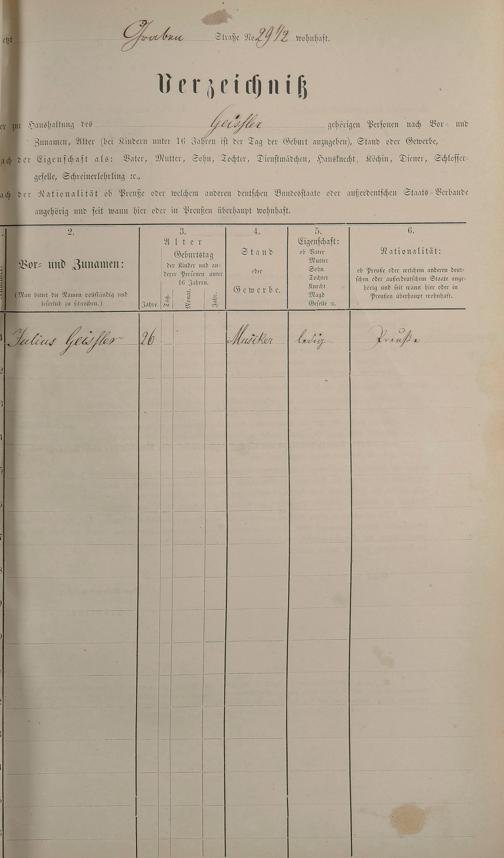 Graben Straße No 29 1/2 wohnhaft.
Verzeichniß
zur Haushaltung des Geissler gehörigen Personen nach Vor- und
Zunamen, Alter (bei Kindern unter 16 Jahren ist der Tag der Geburt anzugeben), Stand oder Gewerbe,
der Eigenschaft als: Vater, Mutter, Sohn, Tochter, Dienstmädchen, Hausknecht, Köchin, Diener, Schlosser-
geselle, Schreinerlehrling ꝛc.,
der Nationalität ob Preuße oder welchem anderen deutschen Bundesstaate oder außerdeutschen Staats-Verbande
angehörig und seit wann hier oder in Preußen überhaupt wohnhaft.
2.
Vor- und Zunamen:
(Man bittet die Namen vollständig und
leserlich zu schreiben.)
3.
Alter
Geburtstag
der Kinder und an-
derer Personen unter
16 Jahren.
Jahre.
Tag.
Monat.
Jahr.
4.
Stand
oder
Gewerbe.
5.
Eigenschaft:
ob Vater
Mutter
Sohn
Tochter
Knecht
Magd
Geselle ꝛc.
6.
Nationalität:
ob Preuße oder welchem anderen deut-
schen oder außerdeutschen Staate ange-
hörig und seit wann hier oder in
Preußen überhaupt wohnhaft.
Julius Geissler 26 Musiker ledig Preuße